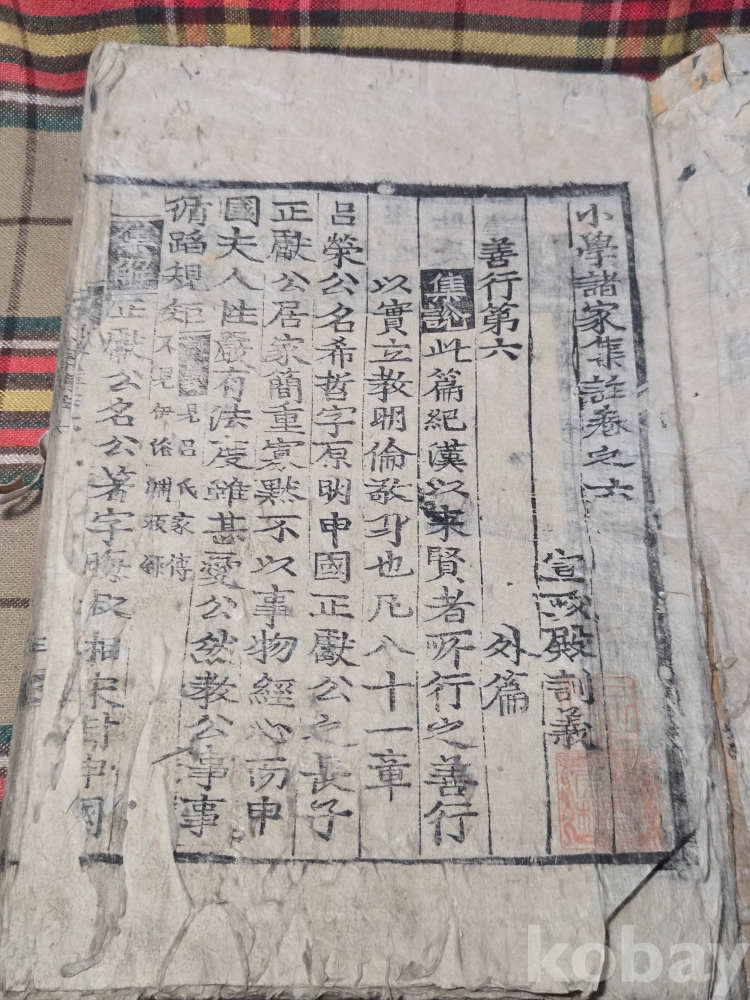 小學諸家集註卷之六
宣政殿訓義
善行第六 外篇
集說此篇紀漢以來賢者所行之善行
以實立教明倫敬身也凡八十一章
呂榮公名希哲字原明申國正獻公之長子
正獻公居家簡重寡默不以事物經心而申
國夫人性嚴有法度雖甚愛公然教公事事
循蹈規矩
見呂氏家傳
不見伊洛淵源錄
集解正獻公名公著字晦叔相宋封申國
kobay